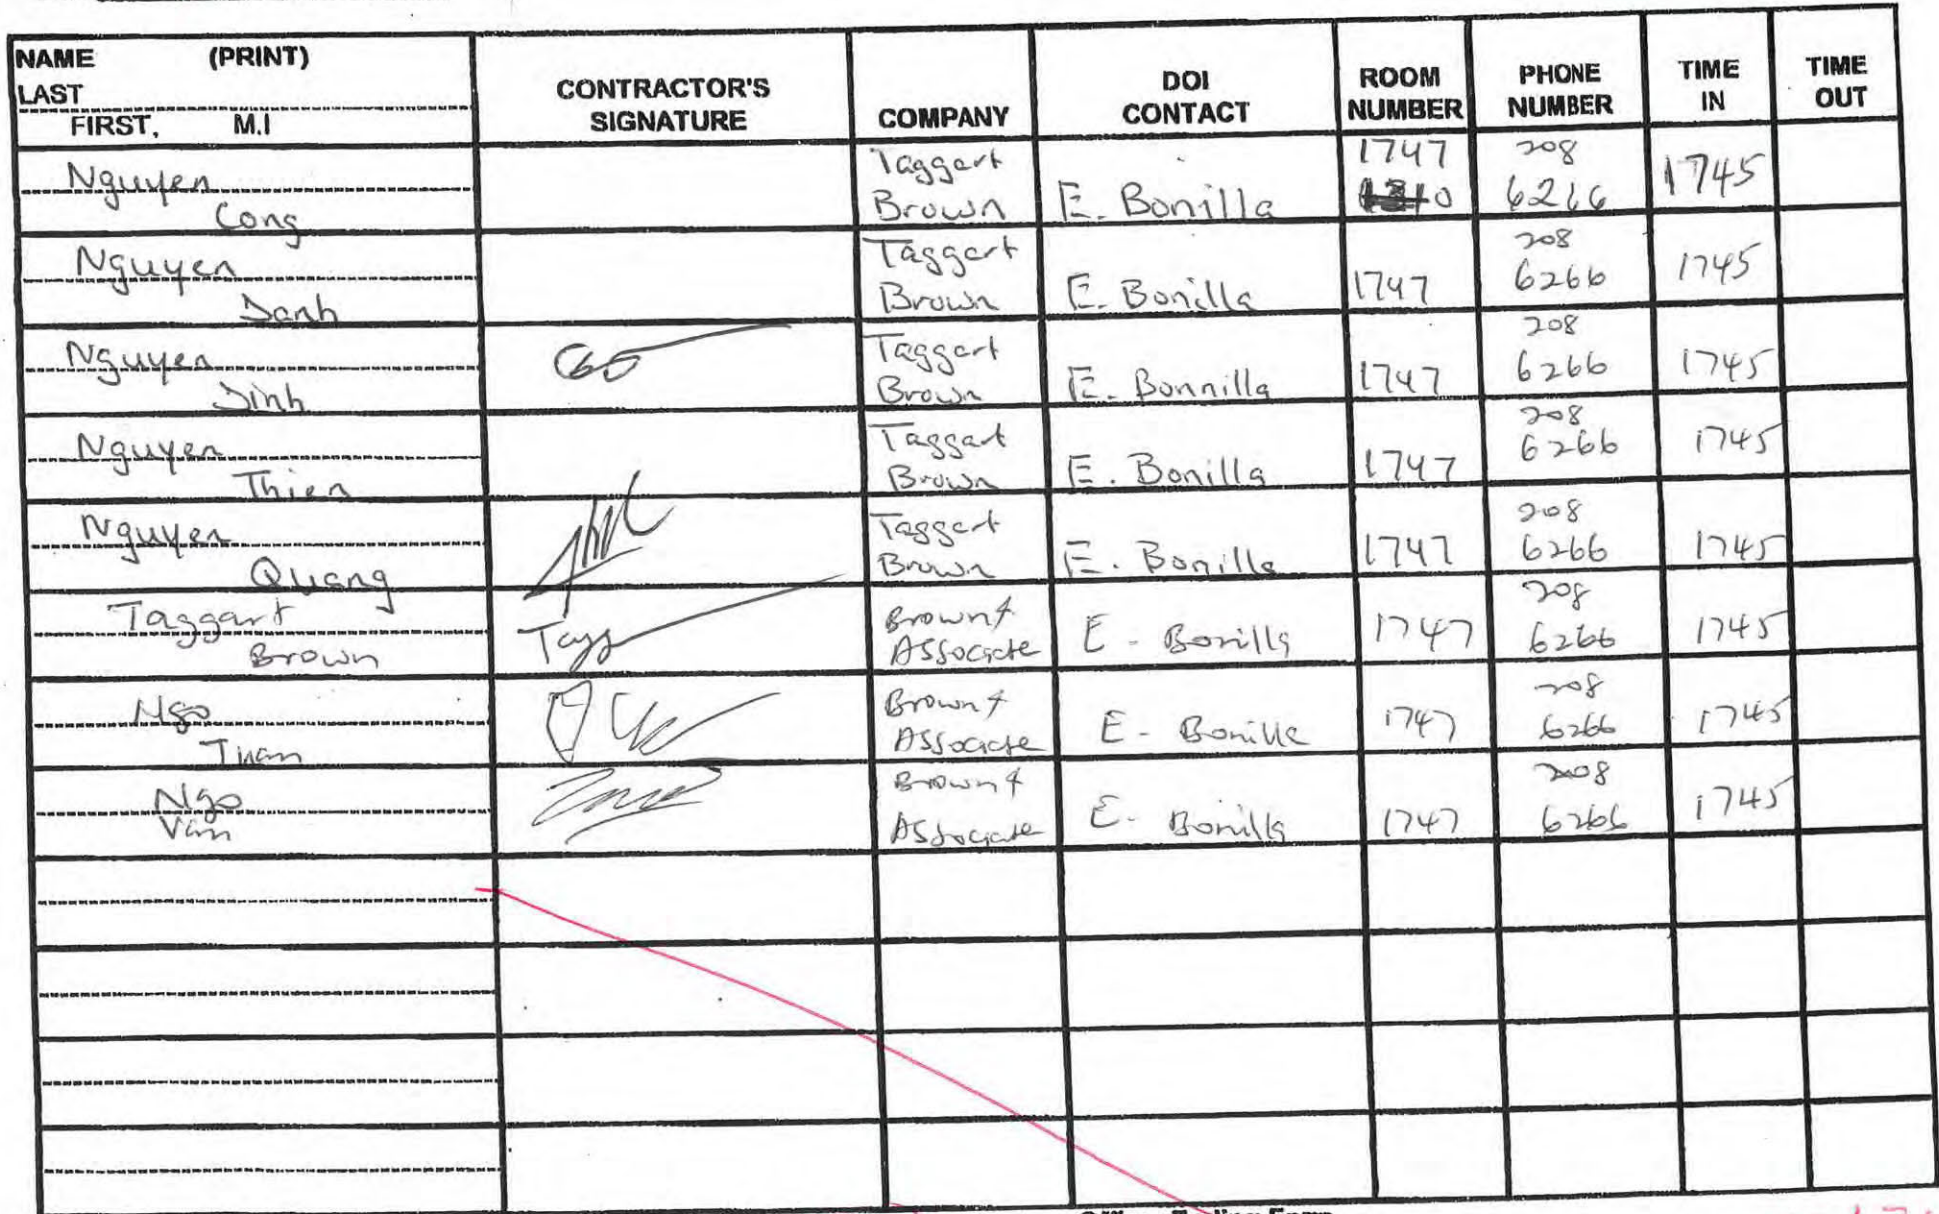 NAME (PRINT)
LAST
FIRST, M.I
CONTRACTOR'S
SIGNATURE
COMPANY
DOI
CONTACT
ROOM
NUMBER
PHONE
NUMBER
TIME
IN
TIME
OUT
Nguyen
Cong
Taggart
Brown
E. Bonilla
1747
208
6266
1745
Nguyen
Danh
Taggart
Brown
E. Bonilla
1747
208
6266
1745
Nguyen
Dinh
Taggart
Brown
E. Bonnilla
1747
208
6266
1745
Nguyen
Thien
Taggart
Brown
E. Bonilla
1747
208
6266
1745
Nguyen
Quang
Taggart
Brown
E. Bonilla
1747
208
6266
1745
Taggart
Brown
Tagg
Brown &
Associate
E - Bonilla
1747
208
6266
1745
Ngo
Tuan
Brown &
Associate
E - Bonilla
1747
208
6266
1745
Ngo
Van
Brown &
Associate
E - Bonilla
1747
208
6266
1745